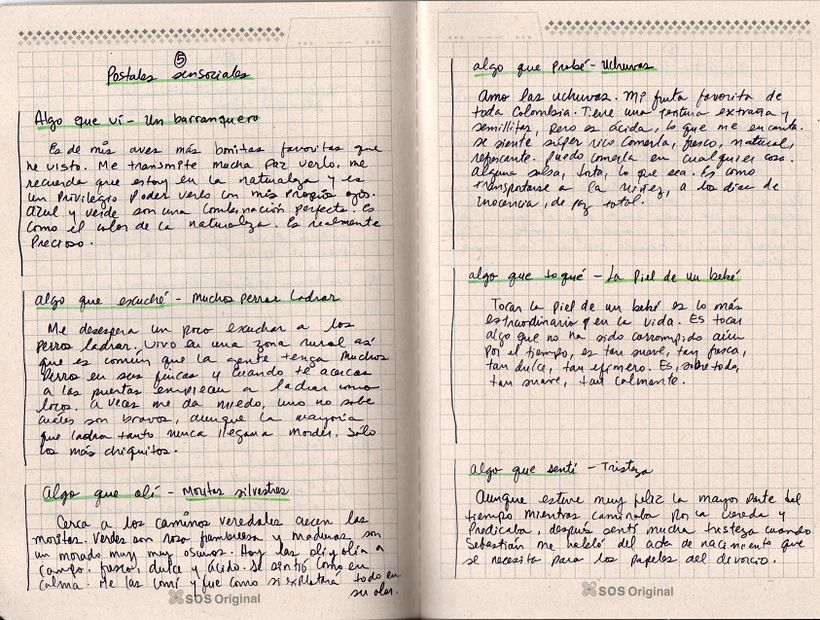 5
Postales sensociales
Algo que vi - Un barranquero
Es de mis aves más bonitas favoritas que
he visto. Me transmite mucha paz verlo, me
recuerda que estoy en la naturaleza y es
un privilegio poder verlo con mis propios ojos.
Azul y verde son una combinación perfecta. Es
como el color de la naturaleza. Es realmente
precioso.
Algo que escuché - Muchos perros ladrar
Me desespera un poco escuchar a los
perros ladrar. Vivo en una zona rural así
que es común que la gente tenga muchos
perro en sus fincas y cuando te acercas
a las puertas empiezan a ladrar como
locos. A veces me da miedo, uno no sabe
cuáles son bravos, aunque la mayoría
que ladra tanto nunca llegan a morder. Sólo
los más chiquitos.
Algo que olí - Moritas silvestres
Cerca a los caminos veredales crecen las
moritas. Verdes son rosa frambuesa y maduras son
un morado muy muy oscuros. Hoy las olí y olía a
campo, fresco, dulce y ácido. Se sintió como en
calma. Me las comí y fue como si explotara todo en
su olor.
SOS Original
algo que probé - uchuvas
Amo las uchuvas. Mi fruta favorita de
toda Colombia. Tiene una textura extraña y
semillitas, pero es ácida, lo que me encanta.
se siente súper rico comerla, fresco, natural,
refrescante. Puedo comerla en cualquier cosa.
Alguna salsa, torta, lo que sea. Es como
transportarse a la niñez, a los días de
inocencia, de paz total.
algo que toqué - La piel de un bebé
Tocar la piel de un bebé es lo más
extraordinario en la vida. Es tocar
algo que no ha sido corrompido aún
por el tiempo, es tan suave, tan fresca,
tan dulce, tan efímero. Es, sobre todo,
tan suave, tan calmante.
algo que sentí - Tristeza
Aunque estuve muy feliz la mayor parte del
tiempo mientras caminaba por la vereda y
predicaba, después sentí mucha tristeza cuando
Sebastián me habló del acta de nacimiento que
se necesita para los papeles del divorcio.
SOS Original